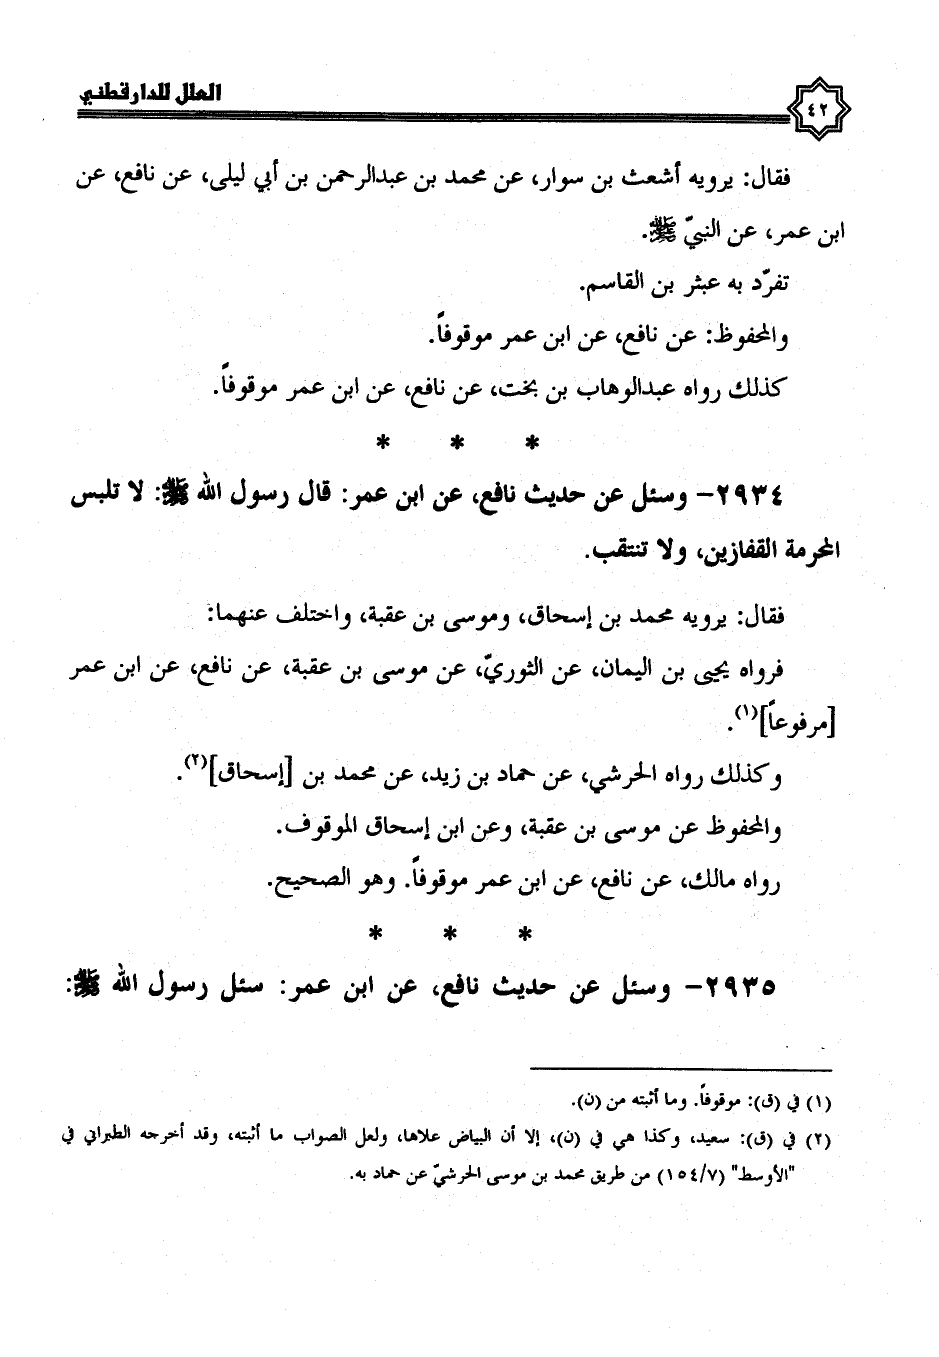 ٤٢
العلل للدارقطني
فقال: يرويه أشعث بن سوار، عن محمد بن عبدالرحمن بن أبي ليلى، عن نافع، عن
ابن عمر، عن النبيّ ﷺ.
تفرّد به عبثر بن القاسم.
والمحفوظ: عن نافع، عن ابن عمر موقوفاً.
كذلك رواه عبدالوهاب بن بخت، عن نافع، عن ابن عمر موقوفاً.
* * *
٢٩٣٤- وسئل عن حديث نافع، عن ابن عمر: قال رسول الله ﷺ: لا تلبس
المحرمة القفازين، ولا تنتقب.
فقال: يرويه محمد بن إسحاق، وموسى بن عقبة، واختلف عنهما:
فرواه يحيى بن اليمان، عن الثوريّ، عن موسى بن عقبة، عن نافع، عن ابن عمر
[مرفوعاً](١).
وكذلك رواه الحرشي، عن حماد بن زيد، عن محمد بن [إسحاق](٢).
والمحفوظ عن موسى بن عقبة، وعن ابن إسحاق الموقوف.
رواه مالك، عن نافع، عن ابن عمر موقوفاً. وهو الصحيح.
* * *
٢٩٣٥- وسئل عن حديث نافع، عن ابن عمر: سئل رسول الله ﷺ:
(١) في (ق): موقوفاً. وما أثبته من (ن).
(٢) في (ق): سعيد، وكذا هي في (ن)، إلا أن البياض علاها، ولعل الصواب ما أثبته، وقد أخرجه الطبراني في
"الأوسط" (١٥٤/٧) من طريق محمد بن موسى الحرشيّ عن حماد به.